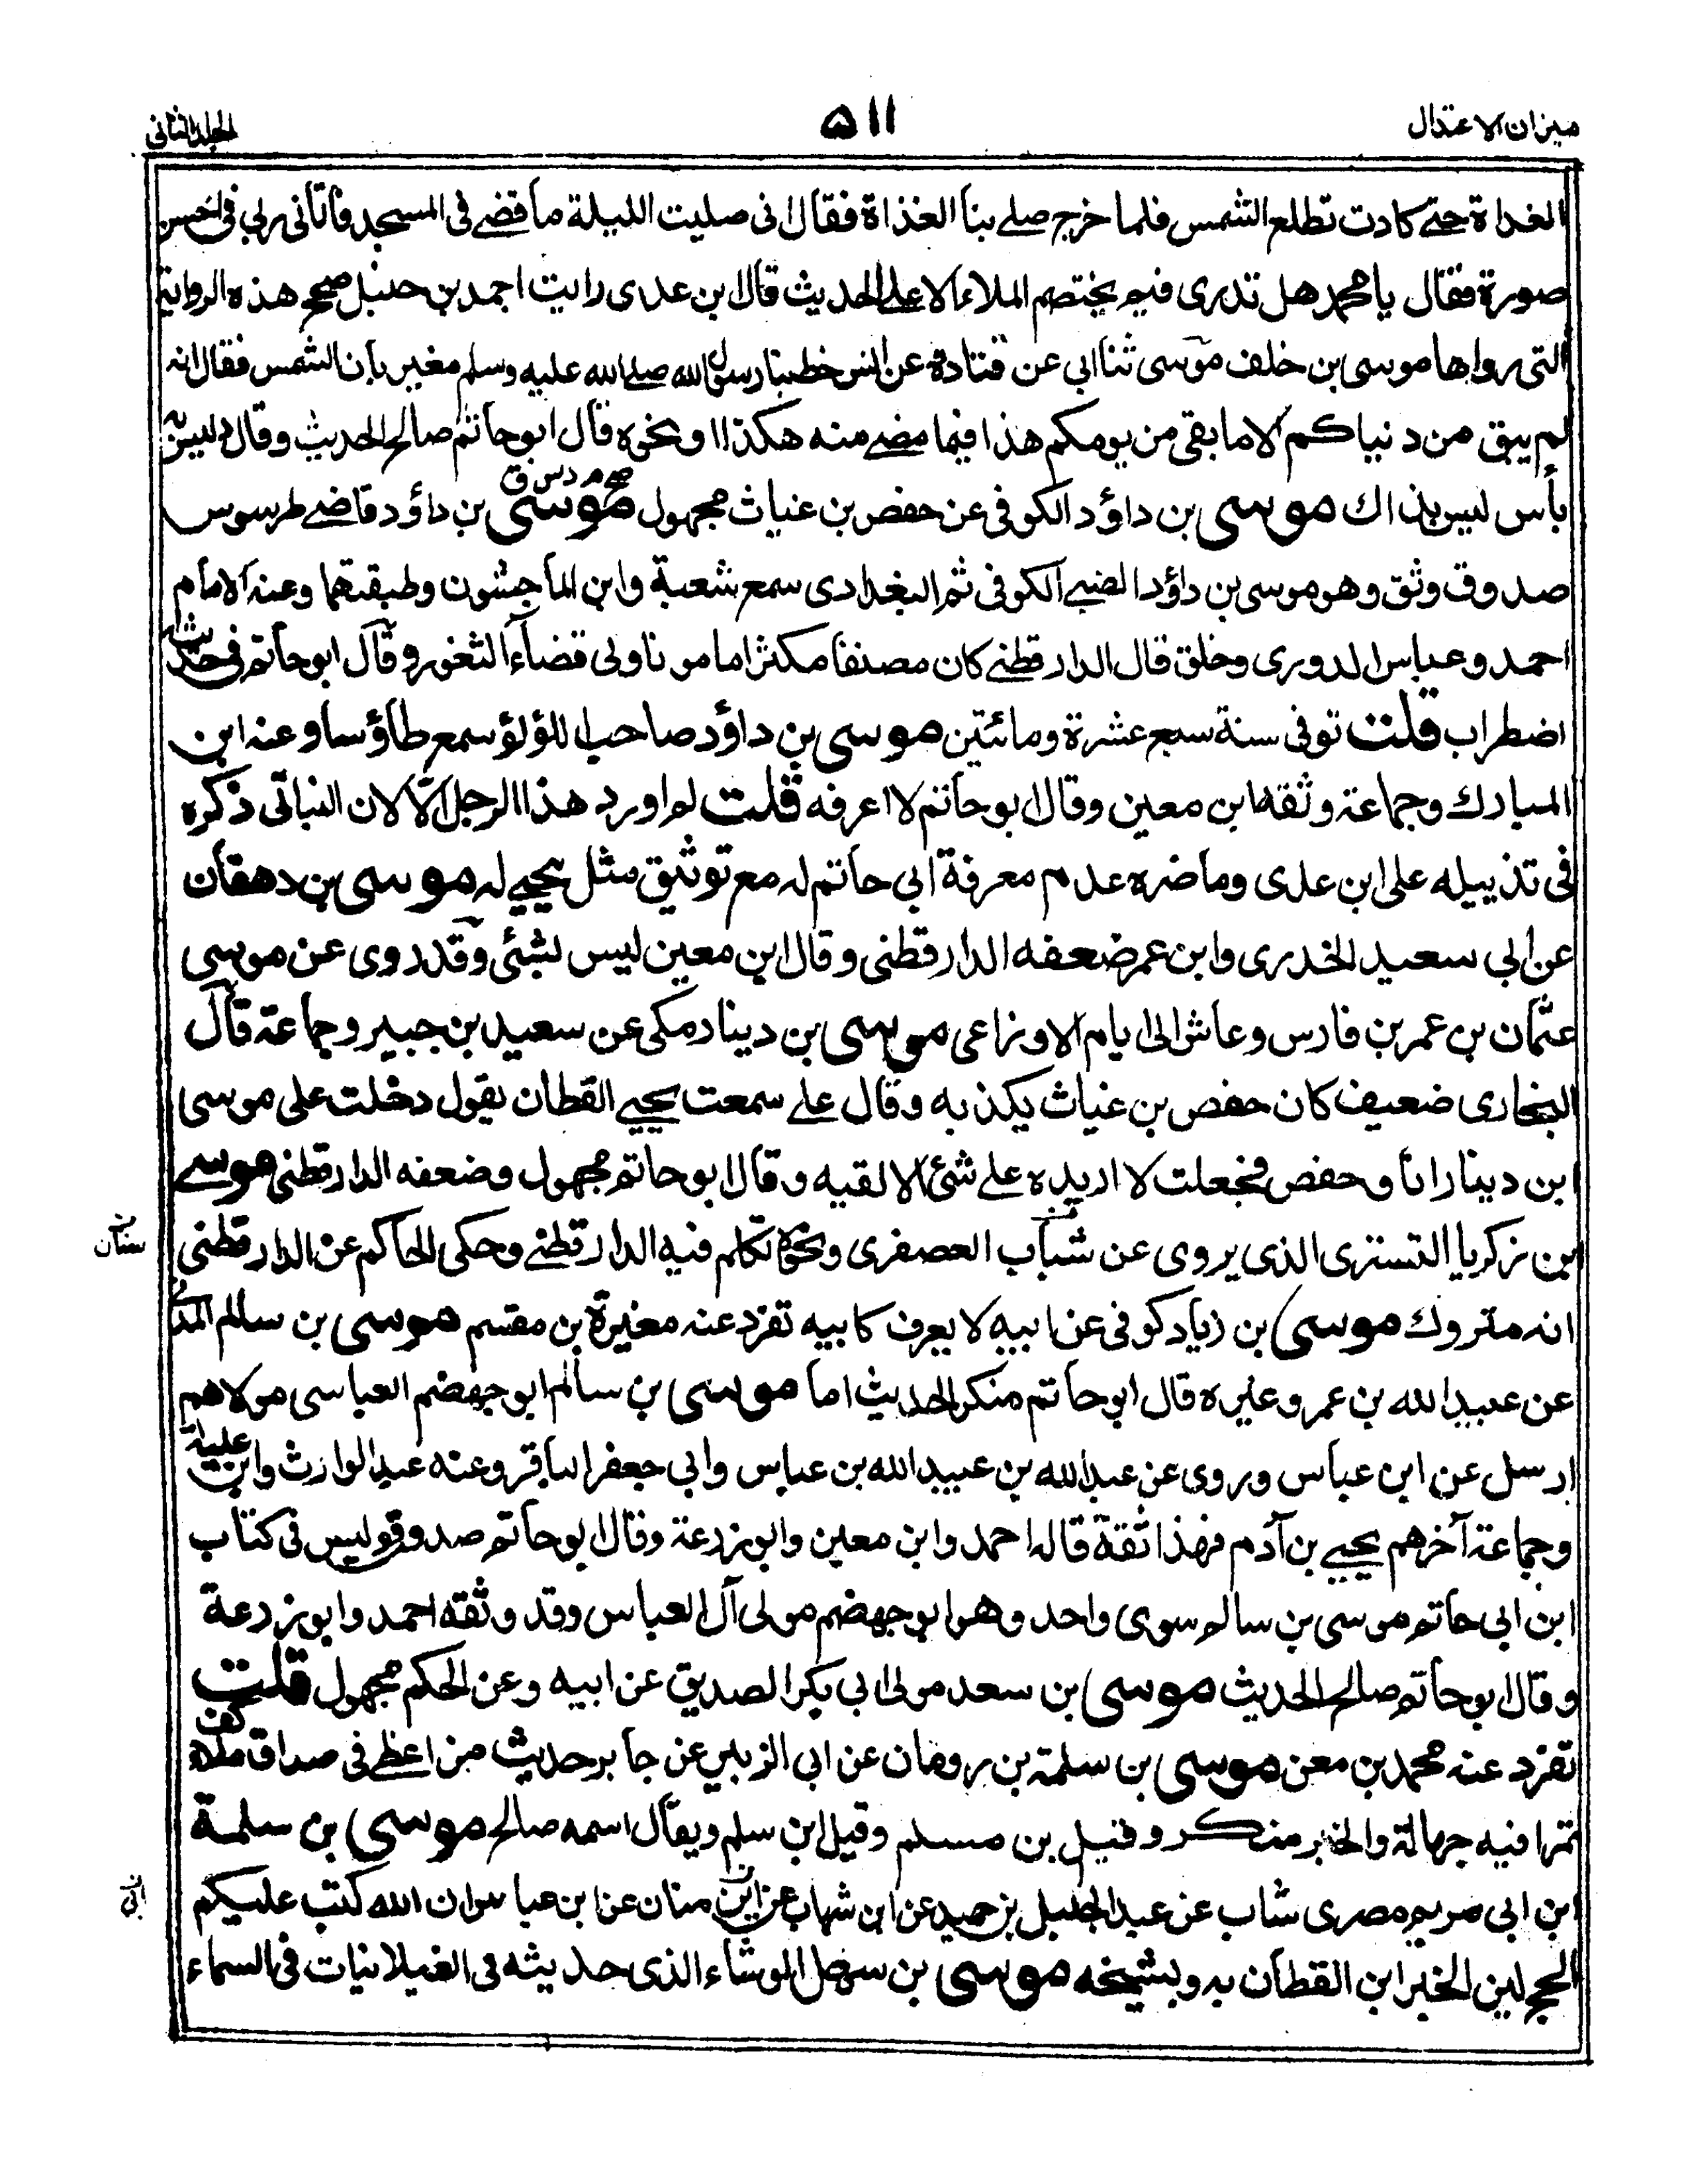 ميزان الاعتدال
٥١١
الجلد الثاني
الغداة حتے كادت تطلع الشمس فلما خرج صلے بنا الغداة فقال انى صليت الليلة ما قضے فى المسجد فأتانى ربى فى احسن
صورة فقال يا محمد هل تدرى فيم يختصم الملاء الاعلے الحديث قال ابن عدى رايت احمد بن حنبل صحح هذه الرواية
التى رواها موسى بن خلف موسى ثنا ابى عن قتادة عن انس خطبنا رسول الله صلے الله عليه وسلم مغيربان الشمس فقال انه
لم يبق من دنياكم الا ما بقى من يومكم هذا فيما مضے منه هكذا او نحوه قال ابو حاتم صالح الحديث وقال د ليس به
بأس ليس بذاك موسى بن داؤد الكوفى عن حفص بن غياث مجهول موسى بن داؤد قاضے طرسوس
صدوق وثق وهو موسى بن داؤد الضبے الكوفى ثم البغدادى سمع شعبة وابن الماجشون وطبقتهما وعنه الامام
احمد وعباس الدورى وخلق قال الدارقطنے كان مصنفا مكثرا مامونا ولى قضاء الثغور وقال ابو حاتم فى حديثه
اضطراب قلت توفى سنة سبع عشرة ومائتين موسى بن داؤد صاحب اللؤلؤ سمع طاؤسا وعنه ابن
المبارك وجماعة وثقه ابن معين وقال ابو حاتم لا اعرفه قلت لم اورد هذا الرجل الّا لان النباتى ذكره
فى تذييله على ابن عدى وما ضره عدم معرفة ابى حاتم له مع توثيق مثل يحيے له موسى بن دهقان
عن ابى سعيد الخدرى وابن عمر ضعفه الدارقطنى وقال ابن معين ليس بشئ وقد روى عن موسى
عثمان بن عمر بن فارس وعاش الى ايام الاوزاعى موسى بن دينار مكى عن سعيد بن جبير وجماعة قال
البخارى ضعيف كان حفص بن غياث يكذبه وقال علے سمعت يحيے القطان يقول دخلت على موسى
ابن دينار انا وحفص فجعلت لا اريده علے شئ الا لقيه وقال ابو حاتم مجهول وضعفه الدارقطنى موسے
بن زكريا التسترى الذى يروى عن شباب العصفرى ونحوه تكلم فيه الدارقطنے وحكى الحاكم عن الدارقطنى
انه متروك موسى بن زياد كوفى عن ابيه لا يعرف كابيه تفرد عنه مغيرة بن مقسم موسى بن سالم المدنى
عن عبيد الله بن عمر وغيره قال ابو حاتم منكر الحديث اما موسى بن سالم ابو جهضم العباسى مولاهم
ارسل عن ابن عباس وروى عن عبد الله بن عبيد الله بن عباس وابى جعفر الباقر وعنه عبد الوارث وابن علية
وجماعة آخرهم يحيے بن آدم فهذا ثقة قاله احمد وابن معين وابو زرعة وقال ابو حاتم صدوق وليس فى كتاب
ابن ابى حاتم موسى بن سالم سوى واحد وهو ابو جهضم مولى آل العباس وقد وثقه احمد وابو زرعة
وقال ابو حاتم صالح الحديث موسى بن سعد مولى ابى بكر الصديق عن ابيه وعن الحكم مجهول قلت
تفرد عنه محمد بن معن موسى بن سلمة بن رومان عن ابى الزبير عن جابر حديث من اعطے فى صداق ملاء كف
تمرا فيه جهالة والخبر منكر وقيل بن مسلم وقيل ابن سلم ويقال اسمه صالح موسى بن سلمة
ابن ابى مريم مصرى شاب عن عبد الجليل بن حميد عن ابن شهاب عن ابن منان عن ابن عباس ان الله كتب عليكم
الحج لين الخبر ابن القطان به وبشيخه موسى بن سهل الوشاء الذى حديثه فى الغيلانيات فى السماء
سنان